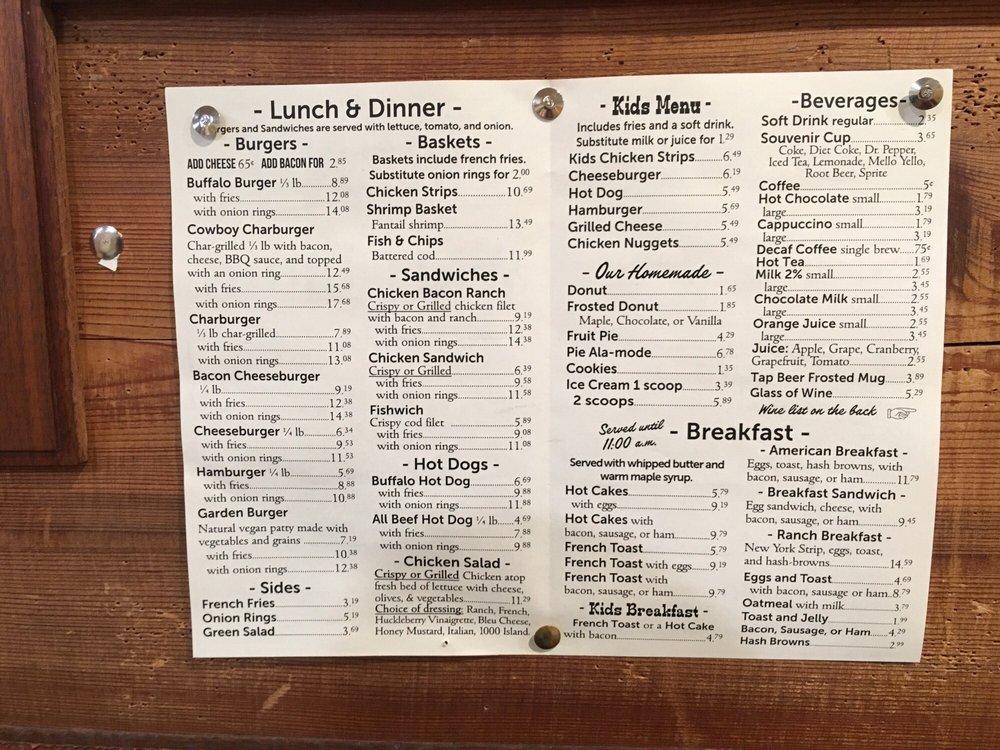 - Lunch & Dinner -
Burgers and Sandwiches are served with lettuce, tomato, and onion.
- Burgers -
ADD CHEESE 65¢ ADD BACON FOR 2.85
Buffalo Burger ⅓ lb 8.89
with fries 12.08
with onion rings 14.08
Cowboy Charburger
Char-grilled ⅓ lb with bacon,
cheese, BBQ sauce, and topped
with an onion ring 12.49
with fries 15.68
with onion rings 17.68
Charburger
⅓ lb char-grilled 7.89
with fries 11.08
with onion rings 13.08
Bacon Cheeseburger
¼ lb 9.19
with fries 12.38
with onion rings 14.38
Cheeseburger ¼ lb 6.34
with fries 9.53
with onion rings 11.53
Hamburger ¼ lb 5.69
with fries 8.88
with onion rings 10.88
Garden Burger
Natural vegan patty made with
vegetables and grains 7.19
with fries 10.38
with onion rings 12.38
- Sides -
French Fries 3.19
Onion Rings 5.19
Green Salad 3.69
- Baskets -
Baskets include french fries.
Substitute onion rings for 2.00
Chicken Strips 10.69
Shrimp Basket
Fantail shrimp 13.49
Fish & Chips
Battered cod 11.99
- Sandwiches -
Chicken Bacon Ranch
Crispy or Grilled chicken filet
with bacon and ranch 9.19
with fries 12.38
with onion rings 14.38
Chicken Sandwich
Crispy or Grilled 6.39
with fries 9.58
with onion rings 11.58
Fishwich
Crispy cod filet 5.89
with fries 9.08
with onion rings 11.08
- Hot Dogs -
Buffalo Hot Dog 6.69
with fries 9.88
with onion rings 11.88
All Beef Hot Dog ¼ lb 4.69
with fries 7.88
with onion rings 9.88
- Chicken Salad -
Crispy or Grilled Chicken atop
fresh bed of lettuce with cheese,
olives, & vegetables 11.29
Choice of dressing: Ranch, French,
Huckleberry Vinaigrette, Bleu Cheese,
Honey Mustard, Italian, 1000 Island.
- Kids Menu -
Includes fries and a soft drink.
Substitute milk or juice for 1.29
Kids Chicken Strips 6.49
Cheeseburger 6.19
Hot Dog 5.49
Hamburger 5.69
Grilled Cheese 5.49
Chicken Nuggets 5.49
- Our Homemade -
Donut 1.65
Frosted Donut 1.85
Maple, Chocolate, or Vanilla
Fruit Pie 4.29
Pie Ala-mode 6.78
Cookies 1.35
Ice Cream 1 scoop 3.39
2 scoops 5.89
-Beverages-
Soft Drink regular 2.35
Souvenir Cup 3.65
Coke, Diet Coke, Dr. Pepper,
Iced Tea, Lemonade, Mello Yello,
Root Beer, Sprite
Coffee 5¢
Hot Chocolate small 1.79
large 3.19
Cappuccino small 1.79
large 3.19
Decaf Coffee single brew 75¢
Hot Tea 1.69
Milk 2% small 2.55
large 3.45
Chocolate Milk small 2.55
large 3.45
Orange Juice small 2.55
large 3.45
Juice: Apple, Grape, Cranberry,
Grapefruit, Tomato 2.55
Tap Beer Frosted Mug 3.89
Glass of Wine 5.29
Wine list on the back
Served until
11:00 a.m.
- Breakfast -
Served with whipped butter and
warm maple syrup.
Hot Cakes 5.79
with eggs 9.19
Hot Cakes with
bacon, sausage, or ham 9.79
French Toast 5.79
French Toast with eggs 9.19
French Toast with
bacon, sausage, or ham 9.79
- Kids Breakfast -
French Toast or a Hot Cake
with bacon 4.79
- American Breakfast -
Eggs, toast, hash browns, with
bacon, sausage, or ham 11.79
- Breakfast Sandwich -
Egg sandwich, cheese, with
bacon, sausage, or ham 9.45
- Ranch Breakfast -
New York Strip, eggs, toast,
and hash-browns 14.59
Eggs and Toast 4.69
with bacon, sausage or ham 8.79
Oatmeal with milk 3.79
Toast and Jelly 1.99
Bacon, Sausage, or Ham 4.29
Hash Browns 2.99